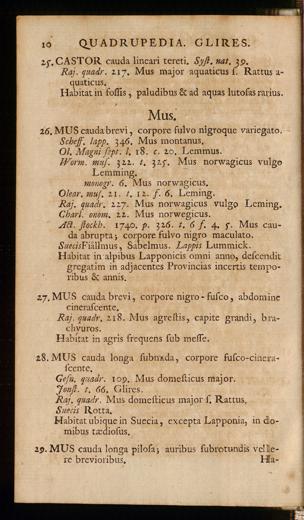 10 QUADRUPEDIA. GLIRES.
25. CASTOR cauda lineari tereti. Syst. nat. 39.
Raj. quadr. 217. Mus major aquaticus s. Rattus a-
quaticus.
Habitat in fossis, paludibus & ad aquas lutosas rarius.
Mus.
26. MUS cauda brevi, corpore fulvo nigroque variegato.
Scheff. lapp. 346. Mus montanus.
Ol. Magni sept. l. 18. c. 20. Lemmus.
Worm. mus. 322. t. 325. Mus norwagicus vulgo
Lemming.
monogr. 6. Mus norwagicus.
Olear. mus. 21. t. 12. f. 6. Leming.
Raj. quadr. 227. Mus norwagicus vulgo Leming.
Charl. onom. 22. Mus norwegicus.
Act. stockh. 1740. p. 326. t. 6 f. 4. 5. Mus cau-
da abrupta; corpore fulvo nigro maculato.
Suecis Fiällmus, Sabelmus. Lappis Lummick.
Habitat in alpibus Lapponicis omni anno, descendit
gregatim in adjacentes Provincias incertis tempo-
ribus & annis.
27. MUS cauda brevi, corpore nigro-fusco, abdomine
cinerascente.
Raj. quadr. 218. Mus agrestis, capite grandi, bra-
chyuros.
Habitat in agris frequens sub messe.
28. MUS cauda longa subnuda, corpore fusco-cinera-
scente.
Gesn. quadr. 109. Mus domesticus major.
Jonst. t. 66. Glires.
Raj. quadr. Mus domesticus major s. Rattus.
Suecis Rotta.
Habitat ubique in Suecia, excepta Lapponia, in do-
mibus tædiosus.
29. MUS cauda longa pilosa; auribus subrotundis velle-
re brevioribus. Ha-